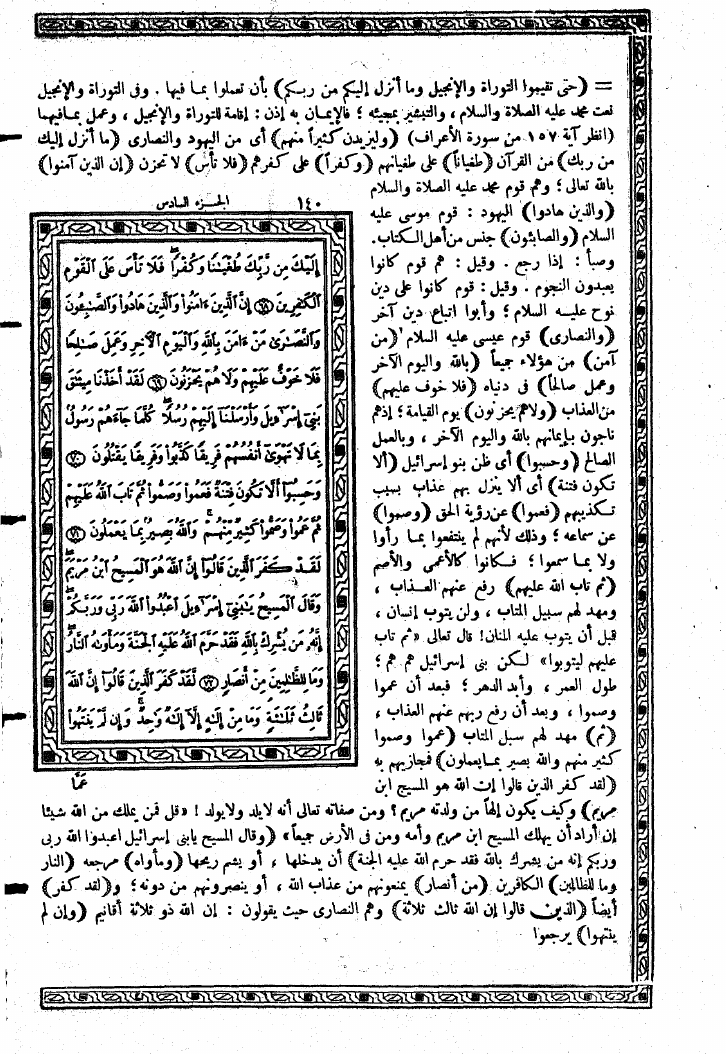 = (حتى تقيموا التوراة والإنجيل وما أنزل إليكم من ربكم) بأن تعملوا بما فيها . وفى التوراة والإنجيل
نعت محمد عليه الصلاة والسلام ، والتبشير بمجيئه ؛ فالإيمان به إذن : إقامة للتوراة والإنجيل ، وعمل بما فيهما
(انظر آية ١٥٧ من سورة الأعراف) (وليزيدن كثيراً منهم) أى من اليهود والنصارى (ما أنزل إليك
من ربك) من القرآن (طغياناً) على طغيانهم (وكفراً) على كفرهم (فلا تأس) لا تحزن (إن الذين آمنوا)
بالله تعالى ؛ وهم قوم محمد عليه الصلاة والسلام
(والذين هادوا) اليهود : قوم موسى عليه
السلام (والصابئون) جنس من أهل الكتاب .
وصبأ : إذا رجع . وقيل : هم قوم كانوا
يعبدون النجوم . وقيل : قوم كانوا على دين
نوح عليه السلام ؛ وأبوا اتباع دين آخر
(والنصارى) قوم عيسى عليه السلام (من
آمن) من هؤلاء جميعاً (بالله واليوم الآخر
وعمل صالحاً) فى دنياه (فلا خوف عليهم)
من العذاب (ولا هم يحزنون) يوم القيامة ؛ إذ هم
ناجون بإيمانهم بالله واليوم الآخر ، وبالعمل
الصالح (وحسبوا) أى ظن بنو إسرائيل (ألا
تكون فتنة) أى ألا ينزل بهم عذاب بسبب
تكذيبهم (فعموا) عن رؤية الحق (وصموا)
عن سماعه ؛ وذلك لأنهم لم ينتفعوا بما رأوا
ولا بما سمعوا ؛ فكانوا كالأعمى والأصم
(ثم تاب الله عليهم) رفع عنهم العذاب ،
ومهد لهم سبيل المتاب ، ولن يتوب إنسان ،
قبل أن يتوب عليه المنان ! قال تعالى «ثم تاب
عليهم ليتوبوا» لكن بنى إسرائيل هم هم ؛
طول العمر ، وأبد الدهر ؛ فبعد أن عموا
وصموا ، وبعد أن رفع ربهم عنهم العذاب ،
(ثم) مهد لهم سبل المتاب (عموا وصموا
كثير منهم والله بصير بما يعملون) فمجازيهم به
(لقد كفر الذين قالوا إن الله هو المسيح ابن
١٤٠ الجزء السادس
إِلَيْكَ مِن رَّبِّكَ طُغْيَٰنًا وَكُفْرًا ۖ فَلَا تَأْسَ عَلَى ٱلْقَوْمِ
ٱلْكَٰفِرِينَ ﴿٦٨﴾ إِنَّ ٱلَّذِينَ ءَامَنُوا۟ وَٱلَّذِينَ هَادُوا۟ وَٱلصَّٰبِـُٔونَ
وَٱلنَّصَٰرَىٰ مَنْ ءَامَنَ بِٱللَّهِ وَٱلْيَوْمِ ٱلْءَاخِرِ وَعَمِلَ صَٰلِحًا
فَلَا خَوْفٌ عَلَيْهِمْ وَلَا هُمْ يَحْزَنُونَ ﴿٦٩﴾ لَقَدْ أَخَذْنَا مِيثَٰقَ
بَنِىٓ إِسْرَٰٓءِيلَ وَأَرْسَلْنَآ إِلَيْهِمْ رُسُلًا ۖ كُلَّمَا جَآءَهُمْ رَسُولٌۢ
بِمَا لَا تَهْوَىٰٓ أَنفُسُهُمْ فَرِيقًا كَذَّبُوا۟ وَفَرِيقًا يَقْتُلُونَ ﴿٧٠﴾
وَحَسِبُوٓا۟ أَلَّا تَكُونَ فِتْنَةٌ فَعَمُوا۟ وَصَمُّوا۟ ثُمَّ تَابَ ٱللَّهُ عَلَيْهِمْ
ثُمَّ عَمُوا۟ وَصَمُّوا۟ كَثِيرٌ مِّنْهُمْ ۚ وَٱللَّهُ بَصِيرٌۢ بِمَا يَعْمَلُونَ ﴿٧١﴾
لَقَدْ كَفَرَ ٱلَّذِينَ قَالُوٓا۟ إِنَّ ٱللَّهَ هُوَ ٱلْمَسِيحُ ٱبْنُ مَرْيَمَ ۖ
وَقَالَ ٱلْمَسِيحُ يَٰبَنِىٓ إِسْرَٰٓءِيلَ ٱعْبُدُوا۟ ٱللَّهَ رَبِّى وَرَبَّكُمْ ۖ
إِنَّهُۥ مَن يُشْرِكْ بِٱللَّهِ فَقَدْ حَرَّمَ ٱللَّهُ عَلَيْهِ ٱلْجَنَّةَ وَمَأْوَىٰهُ ٱلنَّارُ ۖ
وَمَا لِلظَّٰلِمِينَ مِنْ أَنصَارٍ ﴿٧٢﴾ لَّقَدْ كَفَرَ ٱلَّذِينَ قَالُوٓا۟ إِنَّ ٱللَّهَ
ثَالِثُ ثَلَٰثَةٍ وَمَا مِنْ إِلَٰهٍ إِلَّآ إِلَٰهٌ وَٰحِدٌ ۚ وَإِن لَّمْ يَنتَهُوا۟
عَمَّا
مريم) وكيف يكون إلهاً من ولدته مريم ؟ ومن صفاته تعالى أنه لا يلد ولا يولد ! «قل فمن يملك من الله شيئا
إن أراد أن يهلك المسيح ابن مريم وأمه ومن فى الأرض جميعاً» (وقال المسيح يابنى إسرائيل اعبدوا الله ربى
وربكم إنه من يشرك بالله فقد حرم الله عليه الجنة) أن يدخلها ، أو يشم ريحها (ومأواه) مرجعه (النار
وما للظالمين) الكافرين (من أنصار) يمنعونهم من عذاب الله ، أو ينصرونهم من دونه ؛ و(لقد كفر)
أيضاً (الذين قالوا إن الله ثالث ثلاثة) وهم النصارى حيث يقولون : إن الله ذو ثلاثة أقانيم (وإن لم
ينتهوا) يرجعوا